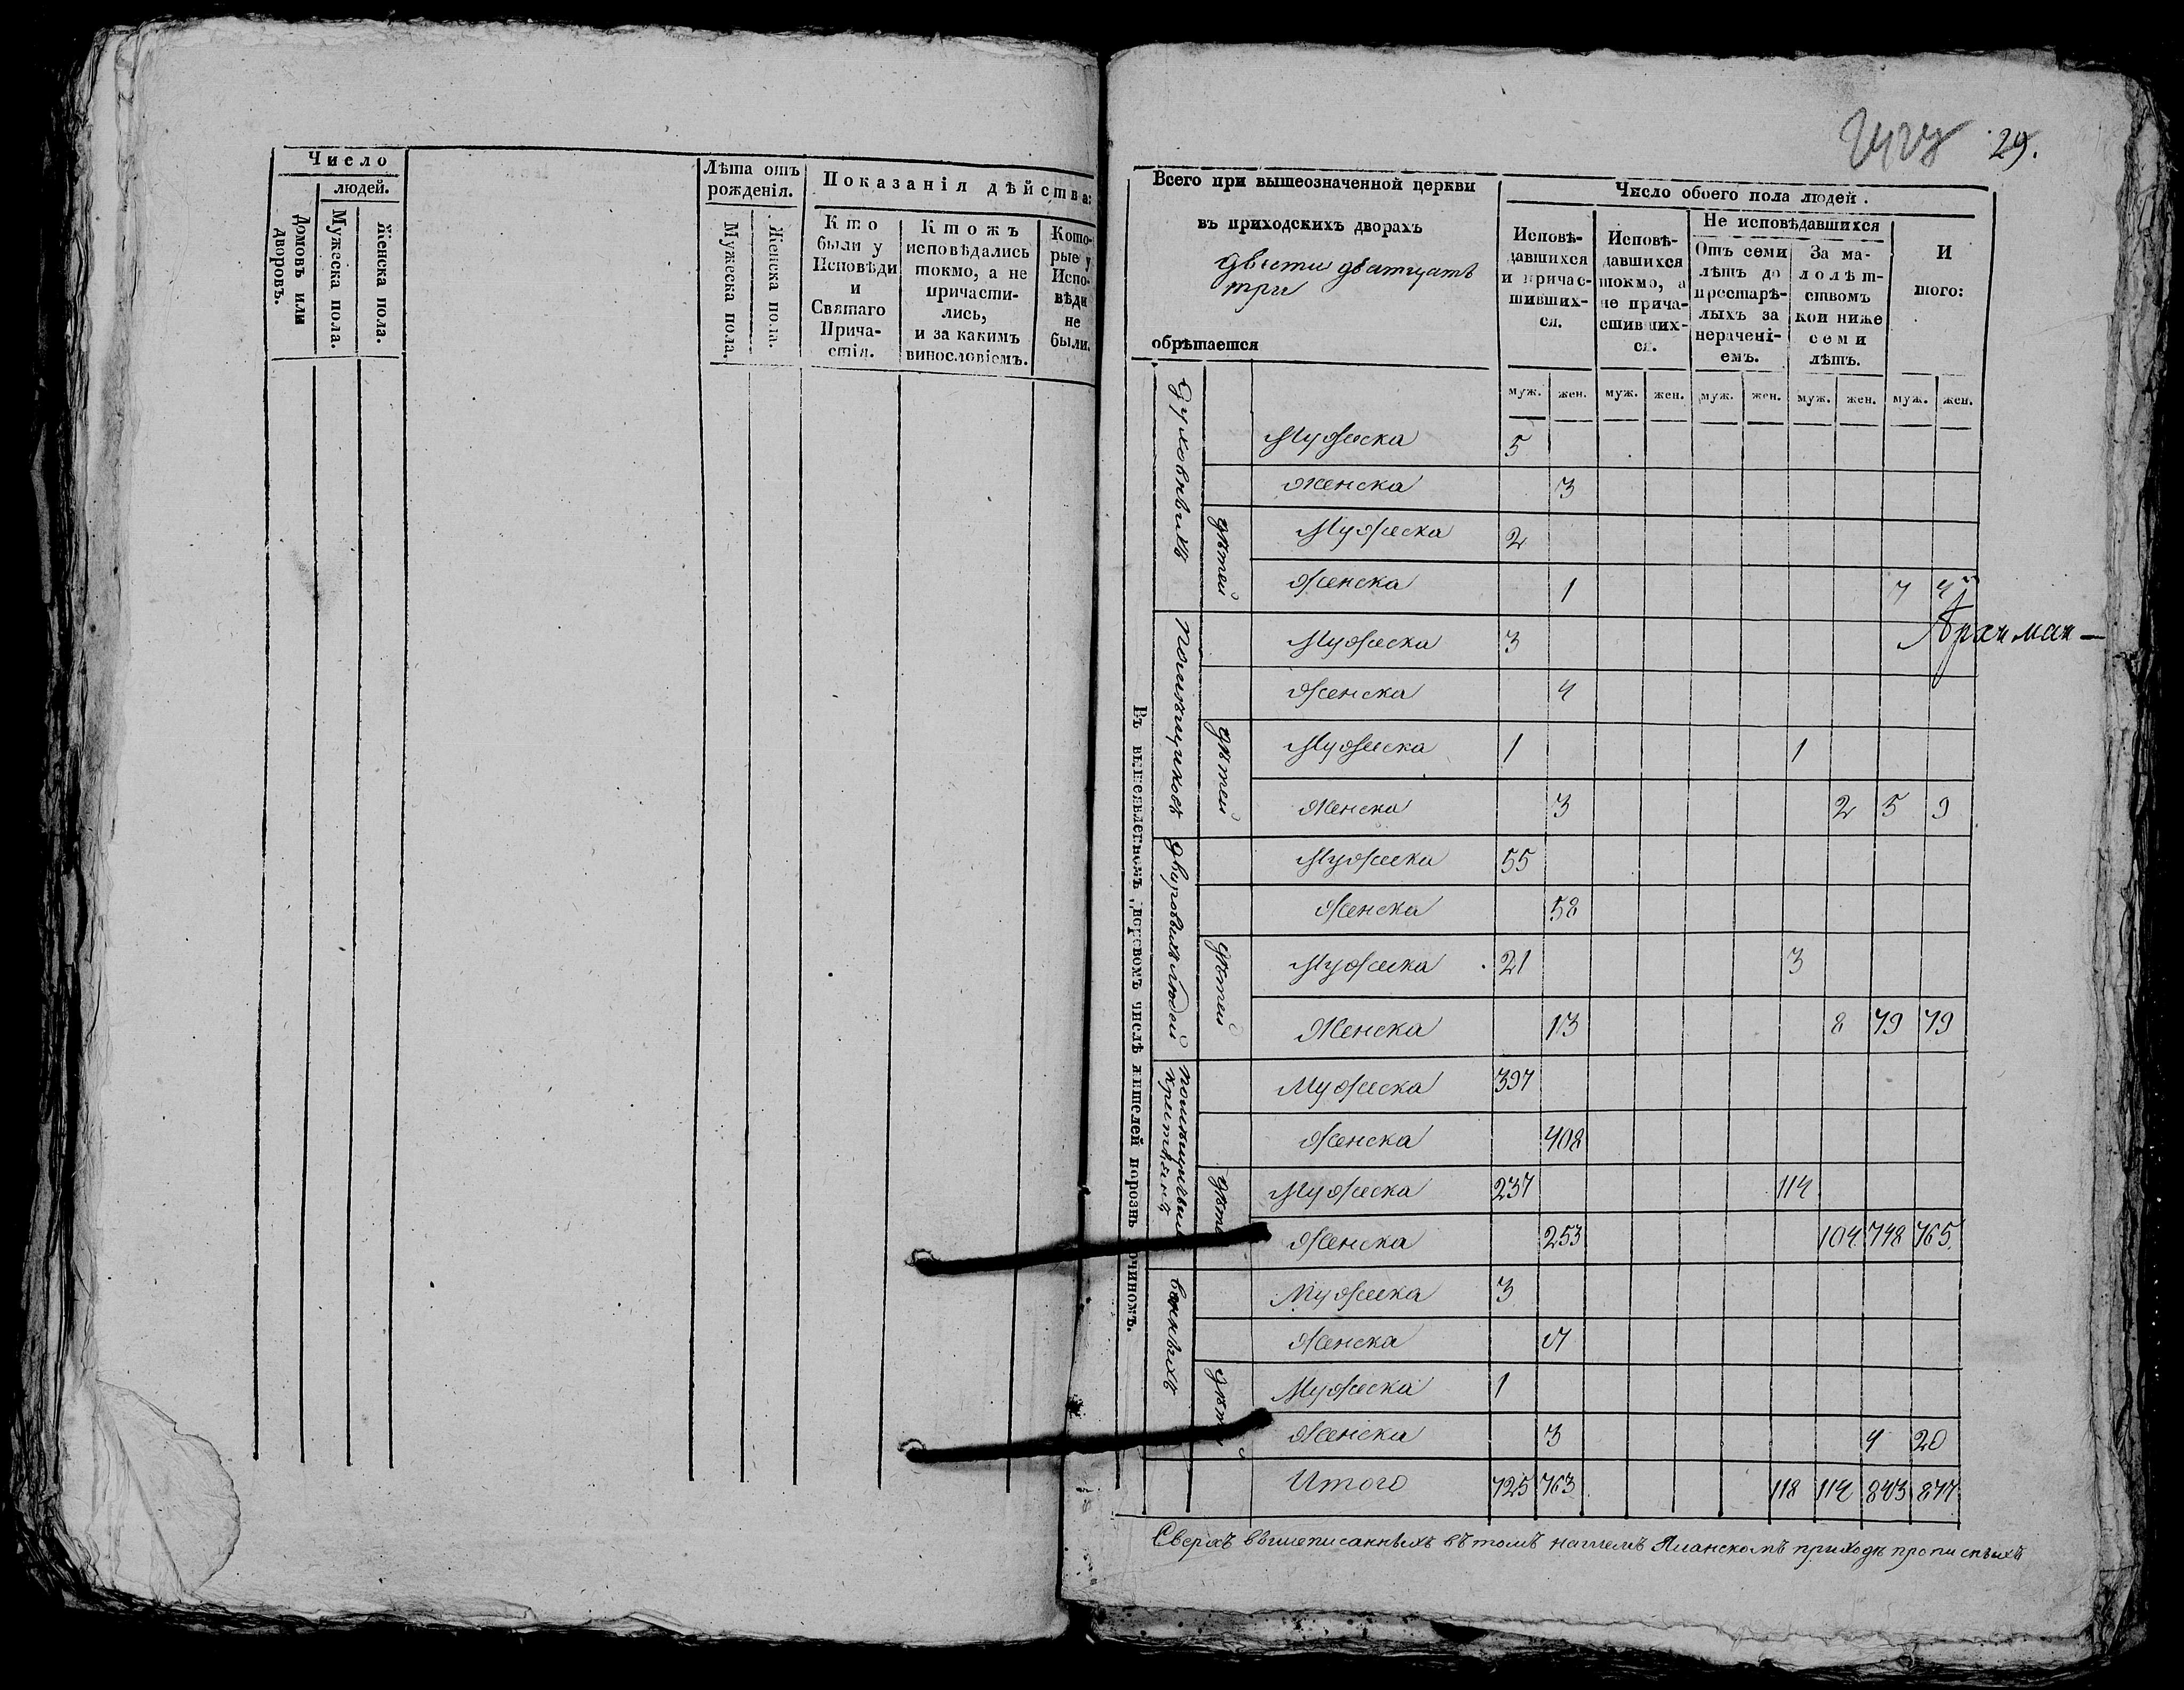 Число
людей.
Домовъ или дворовъ.
Мужеска пола.
Женска пола.
Лѣта отъ рожденія.
Мужеска пола.
Женска пола.
Показанія дѣйства:
Кто были у Исповѣди и Святаго Причастія.
Ктожъ исповѣдались токмо, а не причастились, и за какимъ винословіемъ.
Которые у Исповѣди не были.
29.
Всего при вышеозначенной церкви
въ приходскихъ дворахъ
двести дватцать
три
обрѣтается
Число обоего пола людей.
Исповѣдавшихся и причастившихся.
Исповѣдавшихся токмо, а не причастившихся.
Не исповѣдавшихся
Отъ семи лѣтъ до престарѣлыхъ за нераченіемъ.
За малолѣтствомъ кои ниже семи лѣтъ.
И того:
муж. жен. муж. жен. муж. жен. муж. жен. муж. жен.
Въ вышеявленномъ дворовомъ числѣ жителей порознь чиномъ.
Духовныхъ
Мужеска 5
Женска 3
дѣтей
Мужеска 2
Женска 1 7 4
Помѣщиковъ
Мужеска 3
Женска 4
дѣтей
Мужеска 1 1
Женска 3 2 5 9
дворовыхъ людей
Мужеска 55
Женска 58
дѣтей
Мужеска 21 3
Женска 13 8 79 79
помѣщичьихъ крестьянъ
Мужеска 397
Женска 408
дѣтей
Мужеска 237 114
Женска 253 104 748 765
Мужеска 3
Женска 17
дѣтей
Мужеска 1
Женска 3 4 20
Итого 725 763 118 114 843 877
Сверхъ вышеписанныхъ въ томъ нашемъ приходѣ прописныхъ